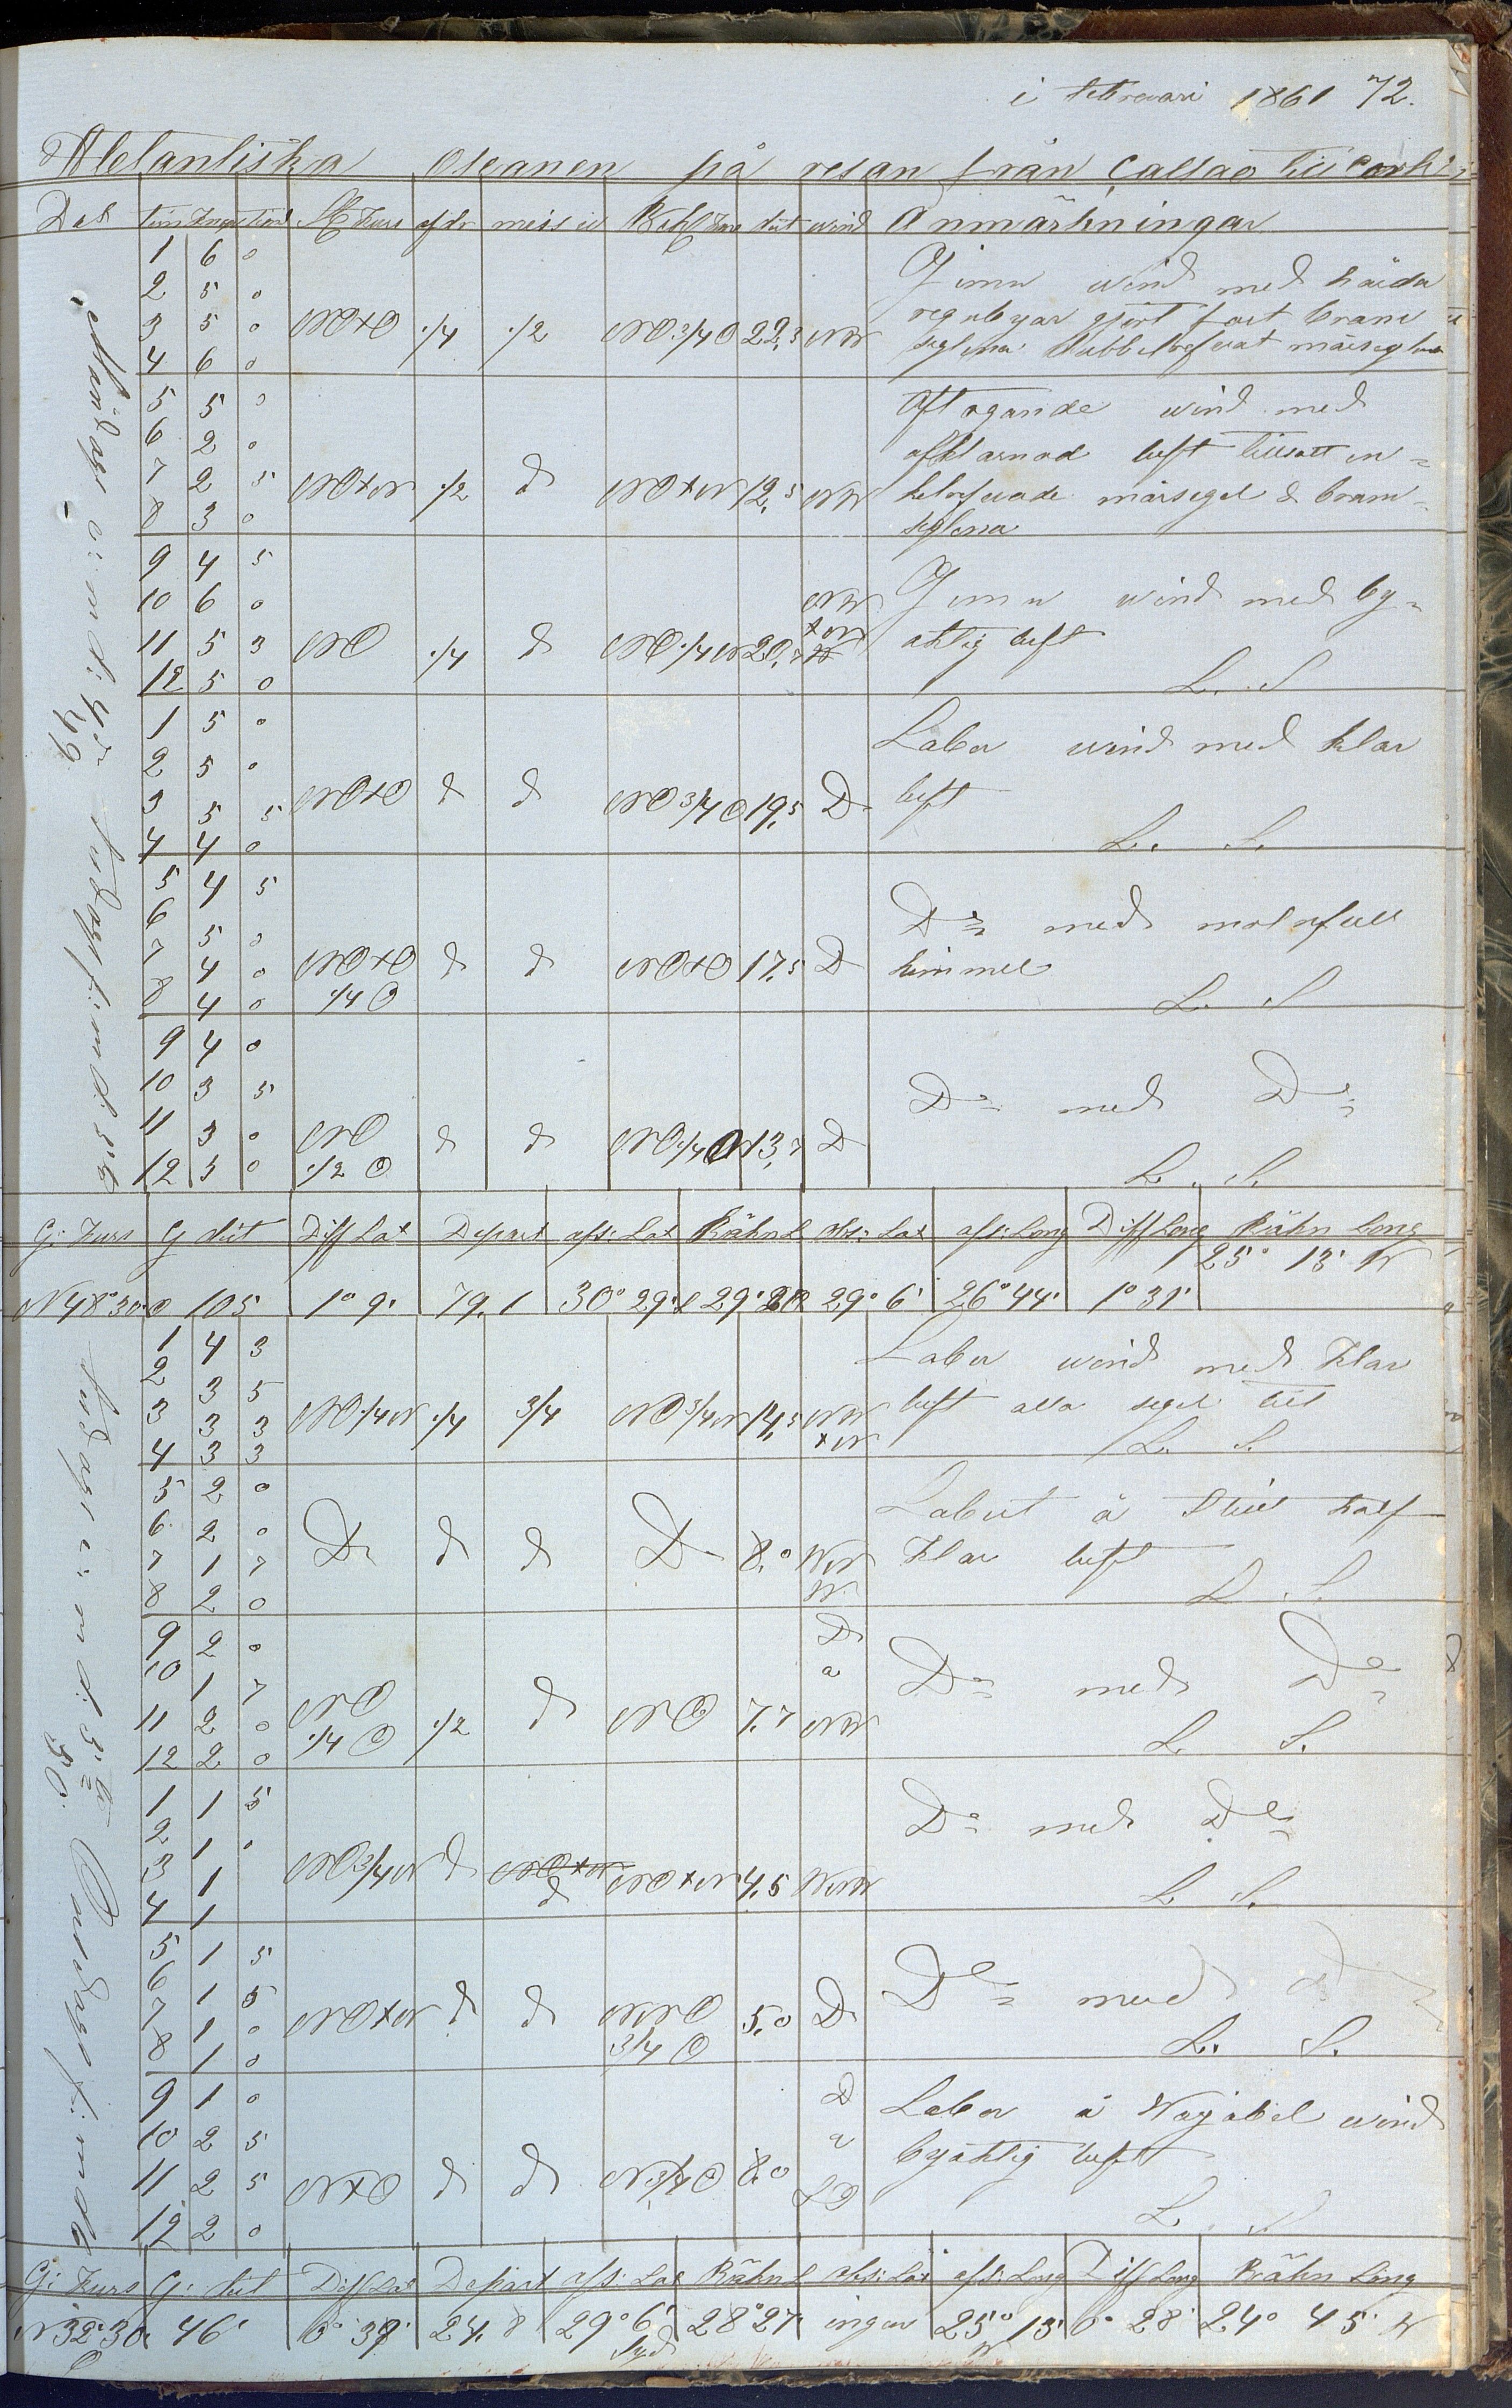 i februari 1861 72.
Atlantiska Oseanen på resan från Callao till Cork
Dat tim Knop tiond St Kurs afdr miss v Behl Kurs dist wind Anmärkningar
1 6 0
2 5 0
3 5 0 NO+O 1/4 1/2 NO 3/4 O 22,3 NW
4 6 0
Jemn wind med hårda
regnbyar gjort fast bram
seglena dubbelrefvat märseglena
5 5 0
6 2 0
7 2 5 NO+N 1/2 d NO+N 12,5 NW
8 3 0
Aftagande wind med
afklarnad luft tillsatt en=
kelrefvade märsegel & bram=
seglena
9 4 5
10 6 0
11 5 3 NO 1/4 d NO 1/4 N 20,8 NW+W
12 5 0
Jemn wind med by=
aktig luft
L. S
1 5 0
2 5 0
3 5 5 NO+O d d NO 3/4 O 19,5 D
4 4 0
Måndag e: m d: 4de
49
Tisdag f: m d: 5te
Laber wind med klar
luft
L. S.
5 4 5
6 5 0
7 4 0 NO+O d d NO+O 17,5 D
8 4 0 1/4 O
Do med molnfull
himmel
L. S
9 4 0
10 3 5
11 3 0 NO d d NO 1/4 O 13,5 D
12 3 0 1/2 O
Do med Do
L. S.
G: Kurs G dist Diff Lat Depart afs: Lat Räkn L obs: Lat afs: Long Diff Long Räkn Long
N 48° 30' O 105 1° 9' 79,1 30° 29' S 29° 20' 29° 6' 26° 44' 1° 31' 25° 13' W
1 4 3
2 3 5
3 3 3 NO 1/4 N 1/4 3/4 NO 3/4 N 14,5 NW
4 3 3 +W
Laber wind med klar
luft alla segel till
L. S.
5 2 0
6 2 0
7 1 7 D d d D 8,0 WNW
8 2 0
Labert å stilt half
klar luft
L. S.
9 2 0 D
10 1 7 a
11 2 0 NO 1/2 d NO 7,7 NW
12 2 0 1/4 O
Do med Do
L S.
Tisdag e: m d: 5te
50.
Onsdag f: m d 6
1 1 5
2 1 0
3 1 NO 3/4 N d d NO+N 4,5 WNW
4 1
Do med Do
L S.
5 1 5
6 1 5
7 1 0 NO+N d d NNO 5,0 D
8 1 0 3/4 O
Do med d
L. S.
9 1 0 D
10 2 5 a
11 2 5 O+N d d N 3/4 O 8,0 SO
12 2 0
Laber å Wajabel wind
byaktig luft
L. S
G: Kurs G: dist Diff Lat Depart afs: Lat Räkn L obs: Lat afs: Long Diff Long Räkn Long
N 32° 30' O 46' 0° 39' 24,8 29° 6' Syd 28° 27' ingen 25° 13' W 0° 28' 24° 45' W